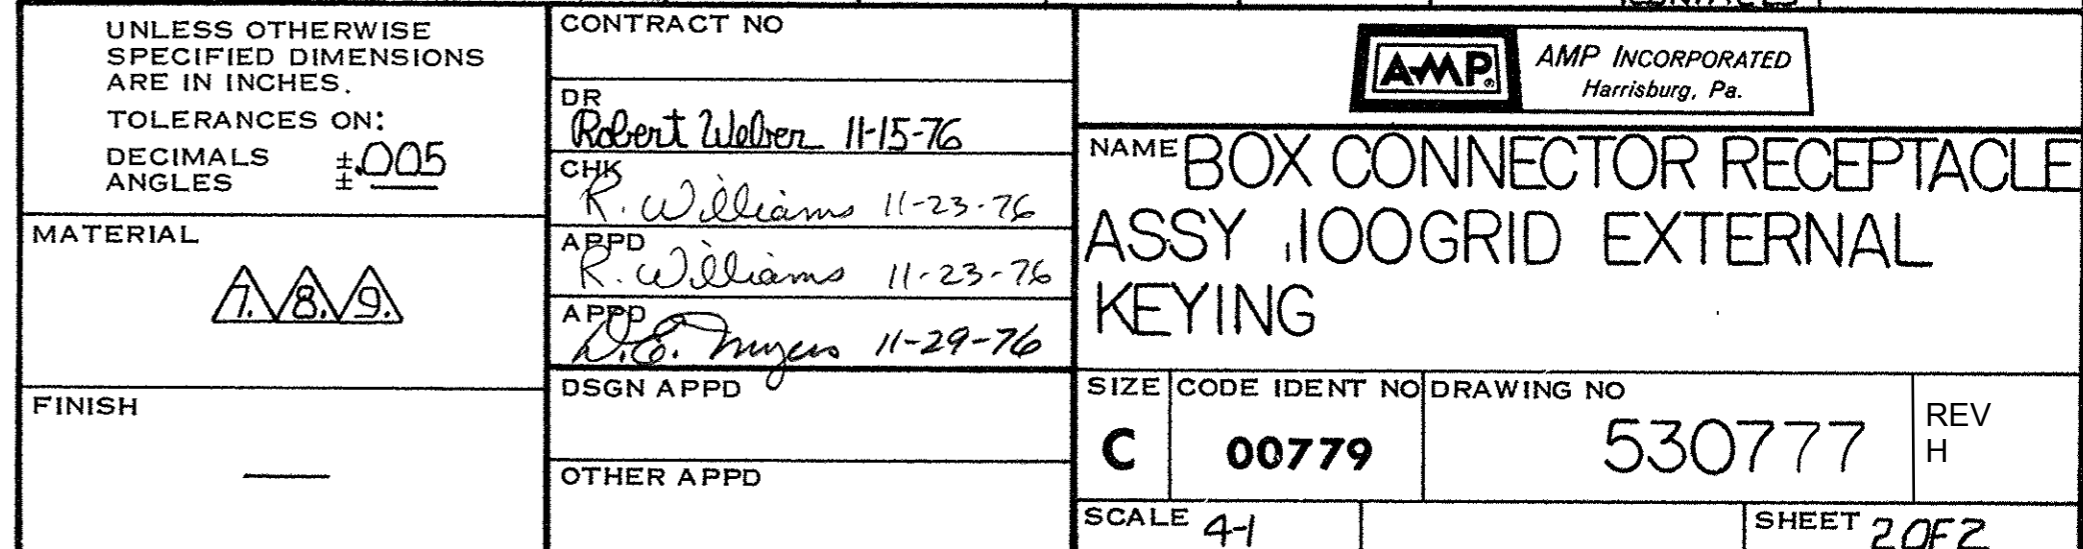 UNLESS OTHERWISE
SPECIFIED DIMENSIONS
ARE IN INCHES.
TOLERANCES ON:
DECIMALS ±.005
ANGLES ±
MATERIAL
7. 8. 9.
FINISH
—
CONTRACT NO
DR
Robert Weber 11-15-76
CHK
R. Williams 11-23-76
APPD
R. Williams 11-23-76
APPD
D.E. Myers 11-29-76
DSGN APPD
OTHER APPD
AMP
AMP INCORPORATED
Harrisburg, Pa.
NAME BOX CONNECTOR RECEPTACLE
ASSY .100GRID EXTERNAL
KEYING
SIZE CODE IDENT NO DRAWING NO REV
C 00779 530777 H
SCALE 4-1 SHEET 2 OF 2